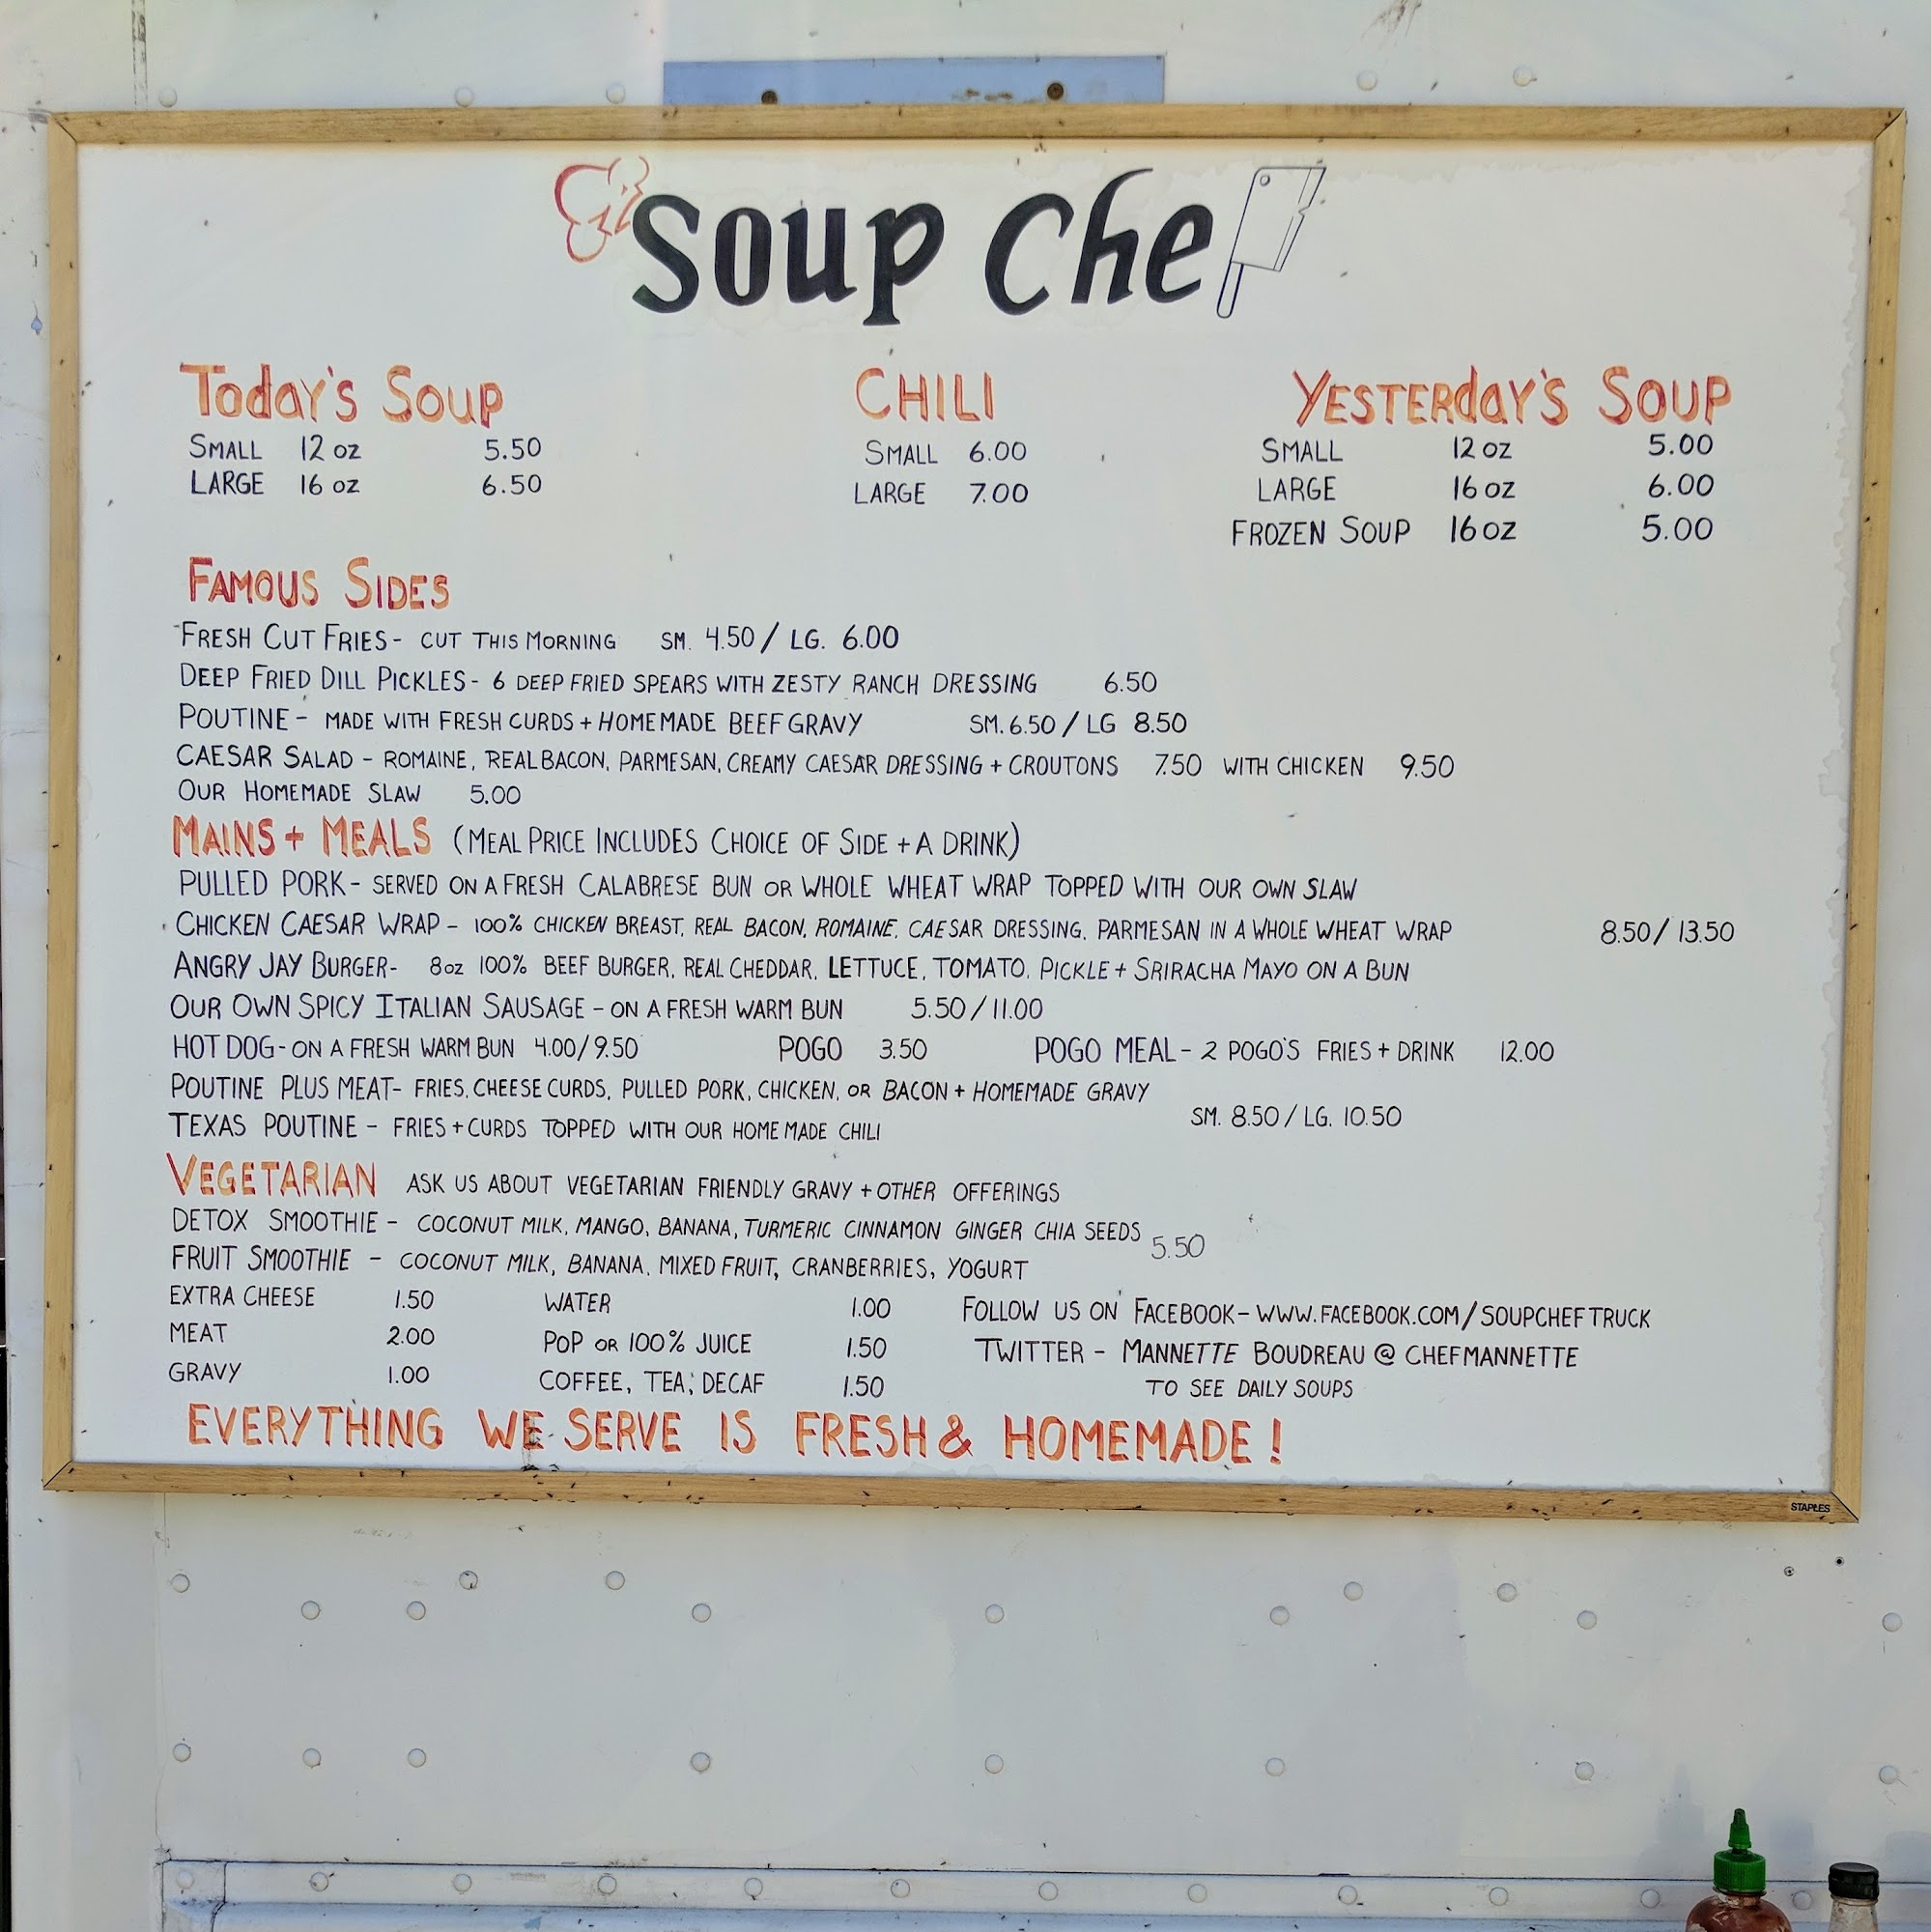 Soup Che
Today's Soup
SMALL 12 oz 5.50
LARGE 16 oz 6.50
CHILI
SMALL 6.00
LARGE 7.00
YESTERdaY'S SOUP
SMALL 12 oz 5.00
LARGE 16 oz 6.00
FROZEN SOUP 16 oz 5.00
FAMOUS SIDES
FRESH CUT FRIES - CUT THIS MORNING SM. 4.50 / LG. 6.00
DEEP FRIED DILL PICKLES - 6 DEEP FRIED SPEARS WITH ZESTY RANCH DRESSING 6.50
POUTINE - MADE WITH FRESH CURDS + HOMEMADE BEEF GRAVY SM. 6.50 / LG 8.50
CAESAR SALAD - ROMAINE, REAL BACON, PARMESAN, CREAMY CAESAR DRESSING + CROUTONS 7.50 WITH CHICKEN 9.50
OUR HOMEMADE SLAW 5.00
MAINS + MEALS (MEAL PRICE INCLUDES CHOICE OF SIDE + A DRINK)
PULLED PORK - SERVED ON A FRESH CALABRESE BUN OR WHOLE WHEAT WRAP TOPPED WITH OUR OWN SLAW
CHICKEN CAESAR WRAP - 100% CHICKEN BREAST, REAL BACON, ROMAINE, CAESAR DRESSING, PARMESAN IN A WHOLE WHEAT WRAP 8.50 / 13.50
ANGRY JAY BURGER - 8oz 100% BEEF BURGER, REAL CHEDDAR, LETTUCE, TOMATO, PICKLE + SRIRACHA MAYO ON A BUN
OUR OWN SPICY ITALIAN SAUSAGE - ON A FRESH WARM BUN 5.50 / 11.00
HOT DOG - ON A FRESH WARM BUN 4.00 / 9.50 POGO 3.50 POGO MEAL - 2 POGO'S FRIES + DRINK 12.00
POUTINE PLUS MEAT - FRIES, CHEESE CURDS, PULLED PORK, CHICKEN, OR BACON + HOMEMADE GRAVY
SM. 8.50 / LG. 10.50
TEXAS POUTINE - FRIES + CURDS TOPPED WITH OUR HOME MADE CHILI
VEGETARIAN ASK US ABOUT VEGETARIAN FRIENDLY GRAVY + OTHER OFFERINGS
DETOX SMOOTHIE - COCONUT MILK, MANGO, BANANA, TURMERIC CINNAMON GINGER CHIA SEEDS
5.50
FRUIT SMOOTHIE - COCONUT MILK, BANANA, MIXED FRUIT, CRANBERRIES, YOGURT
EXTRA CHEESE 1.50
MEAT 2.00
GRAVY 1.00
WATER 1.00
POP OR 100% JUICE 1.50
COFFEE, TEA, DECAF 1.50
FOLLOW US ON FACEBOOK - WWW.FACEBOOK.COM/SOUPCHEFTRUCK
TWITTER - MANNETTE BOUDREAU @ CHEFMANNETTE
TO SEE DAILY SOUPS
EVERYTHING WE SERVE IS FRESH & HOMEMADE!
STAPLES